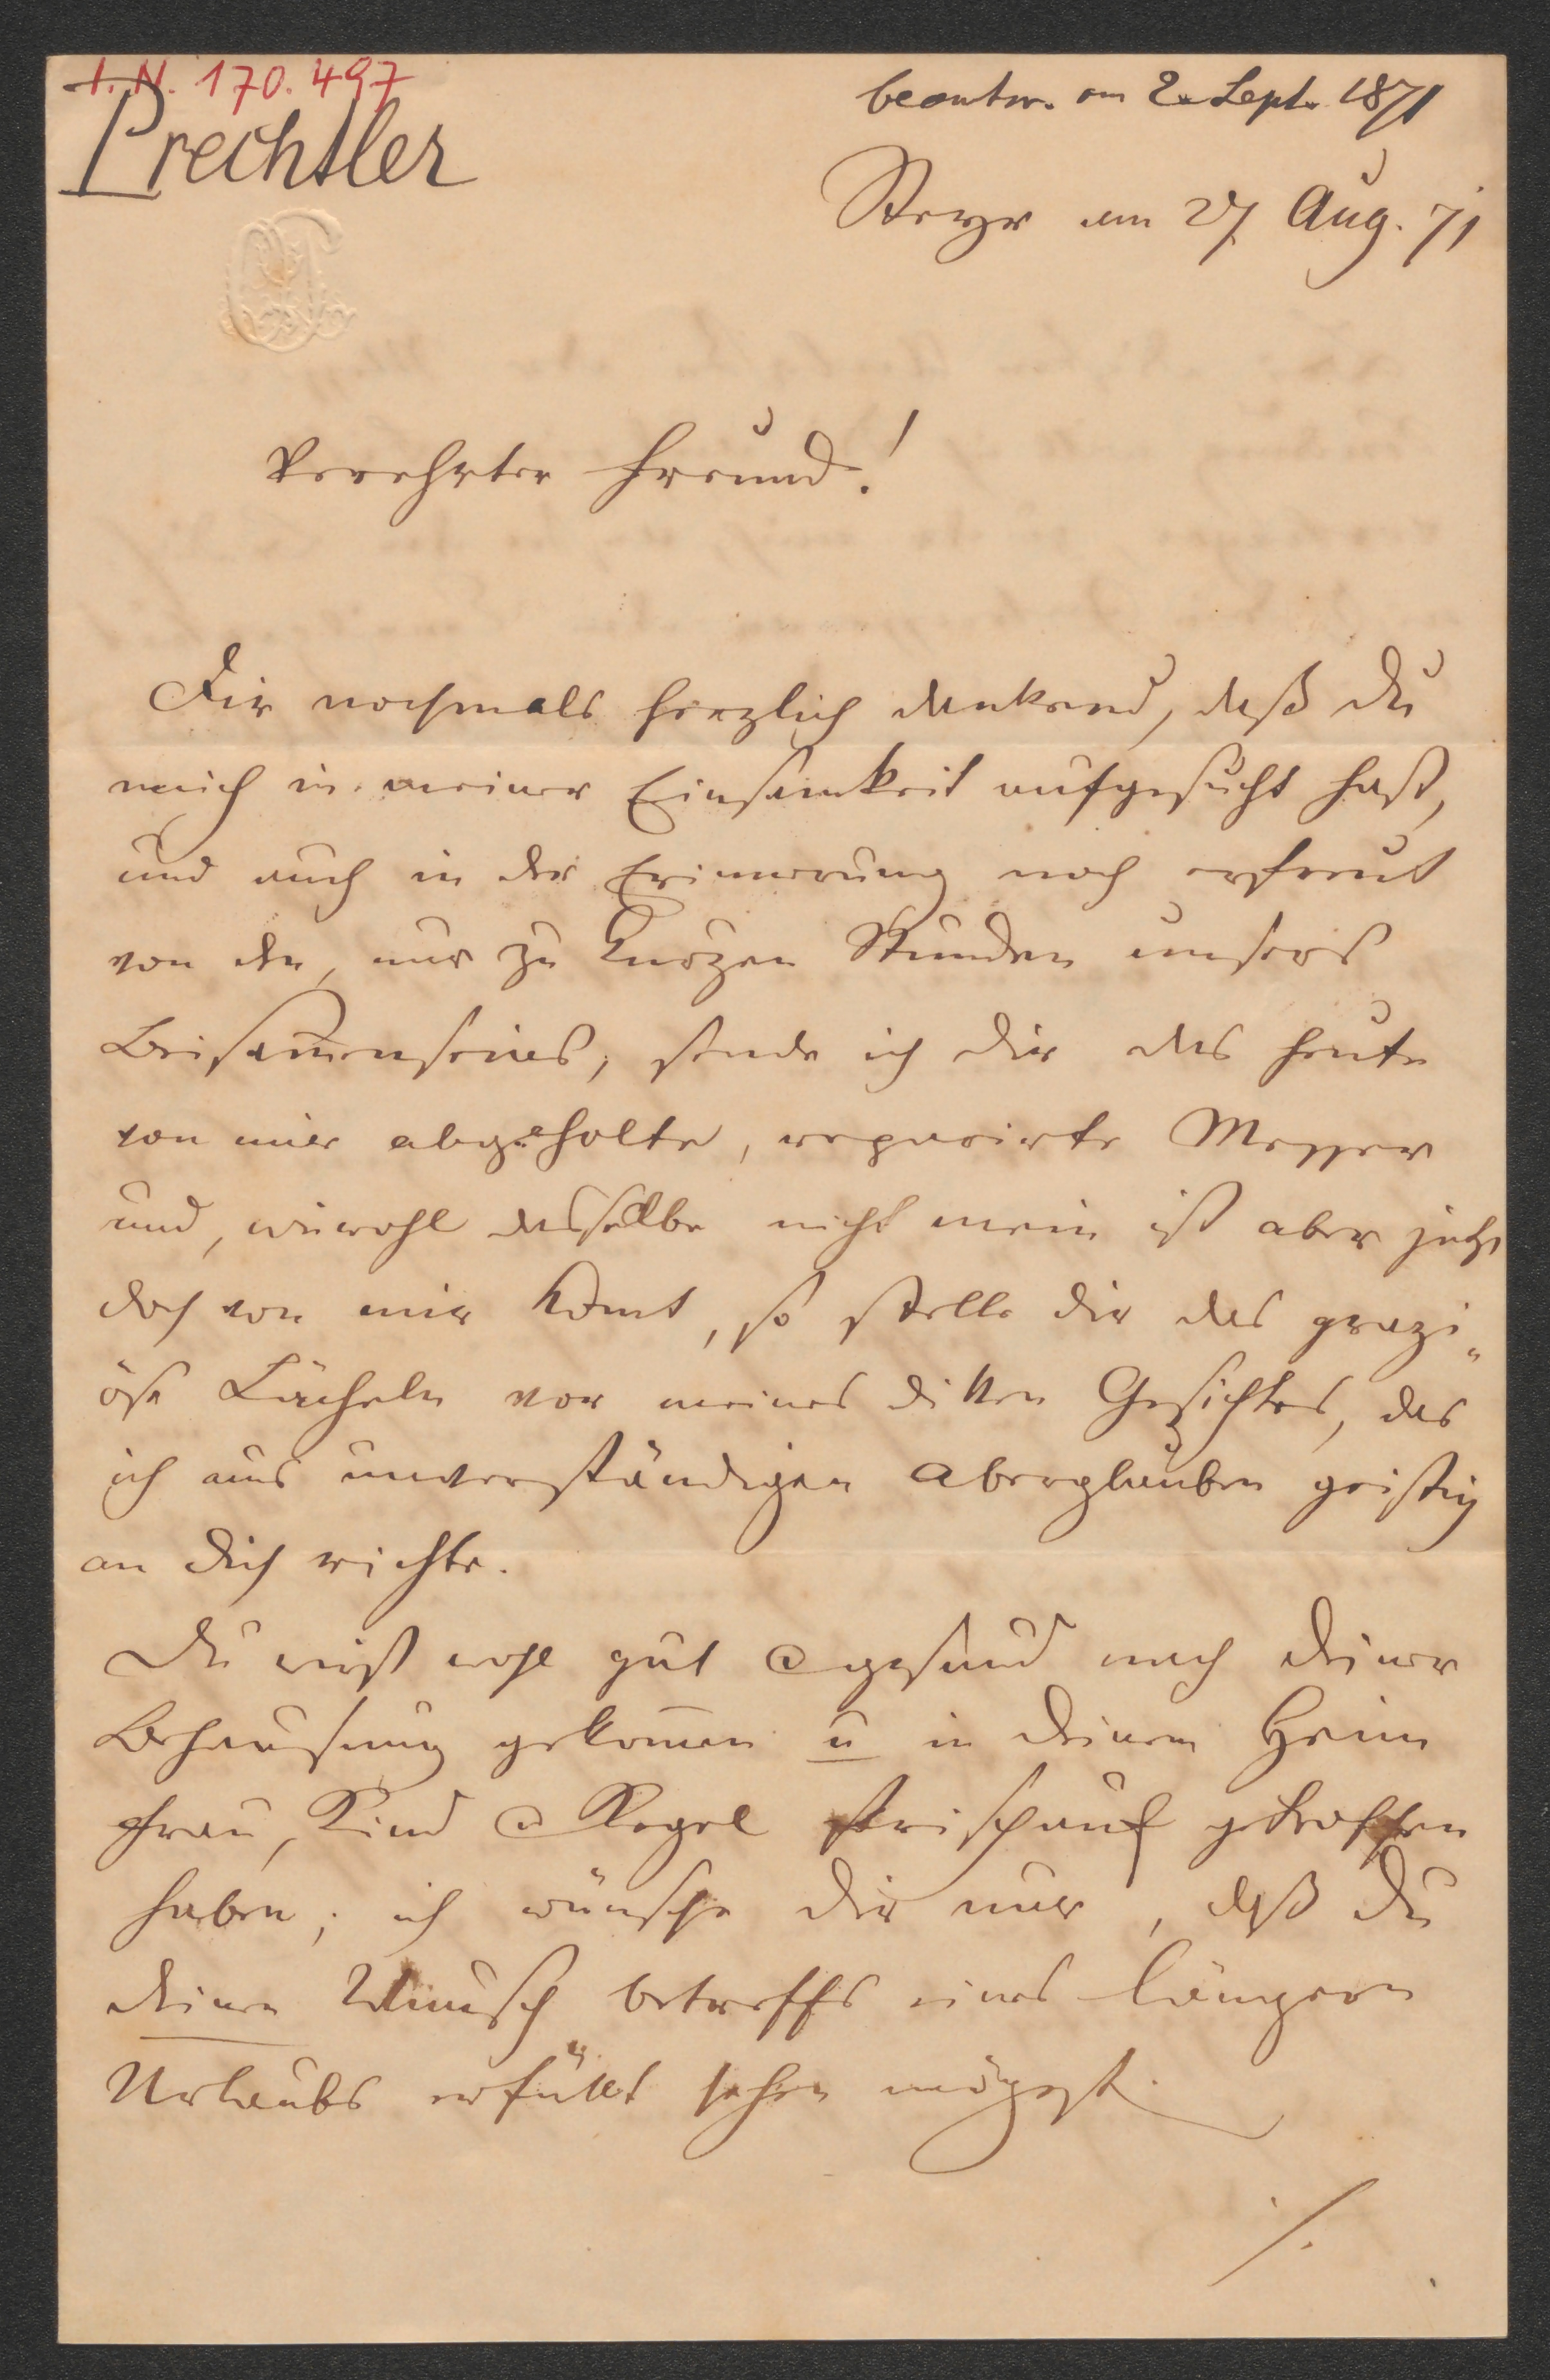 I.N. 170.497
Prechtler
beantw. am 2. Sept. 1871
Steyr am 27 Aug. 71
Verehrter Freund!
Dir nochmals herzlich dankend, daß Du
mich in meiner Einsamkeit aufgesucht hast,
und auch in der Erinnerung noch erfreut
von den, nur zu kurzen Stunden unsers
Beisam̅enseins, sende ich Dir das heute
von mir abgeholte, reparirte Messer
und, wiewohl dasselbe nicht mein ist aber jetzt
doch von mir kom̅t, so stelle Dir das grazi„
öse Lächeln vor meines dikken Gesichtes, das
ich aus unverständigen Aberglauben geistig
an Dich richte.
Du wirst wohl gut & gesund nach Deiner
Behausung gekom̅en u in Deinem Heim
Frau, Kind & Kegel frischauf getroffen
haben; ich wünsche Dir nur, daß Du
Deinen Wunsch betreffs eines längern
Urlaubs erfüllt sehen mögest.
./.